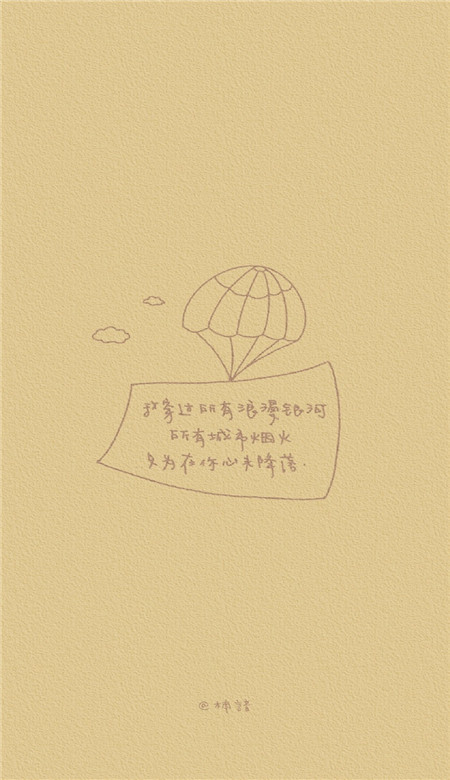 我穿过所有浪漫银河
所有城市烟火
只为在你心头降落.